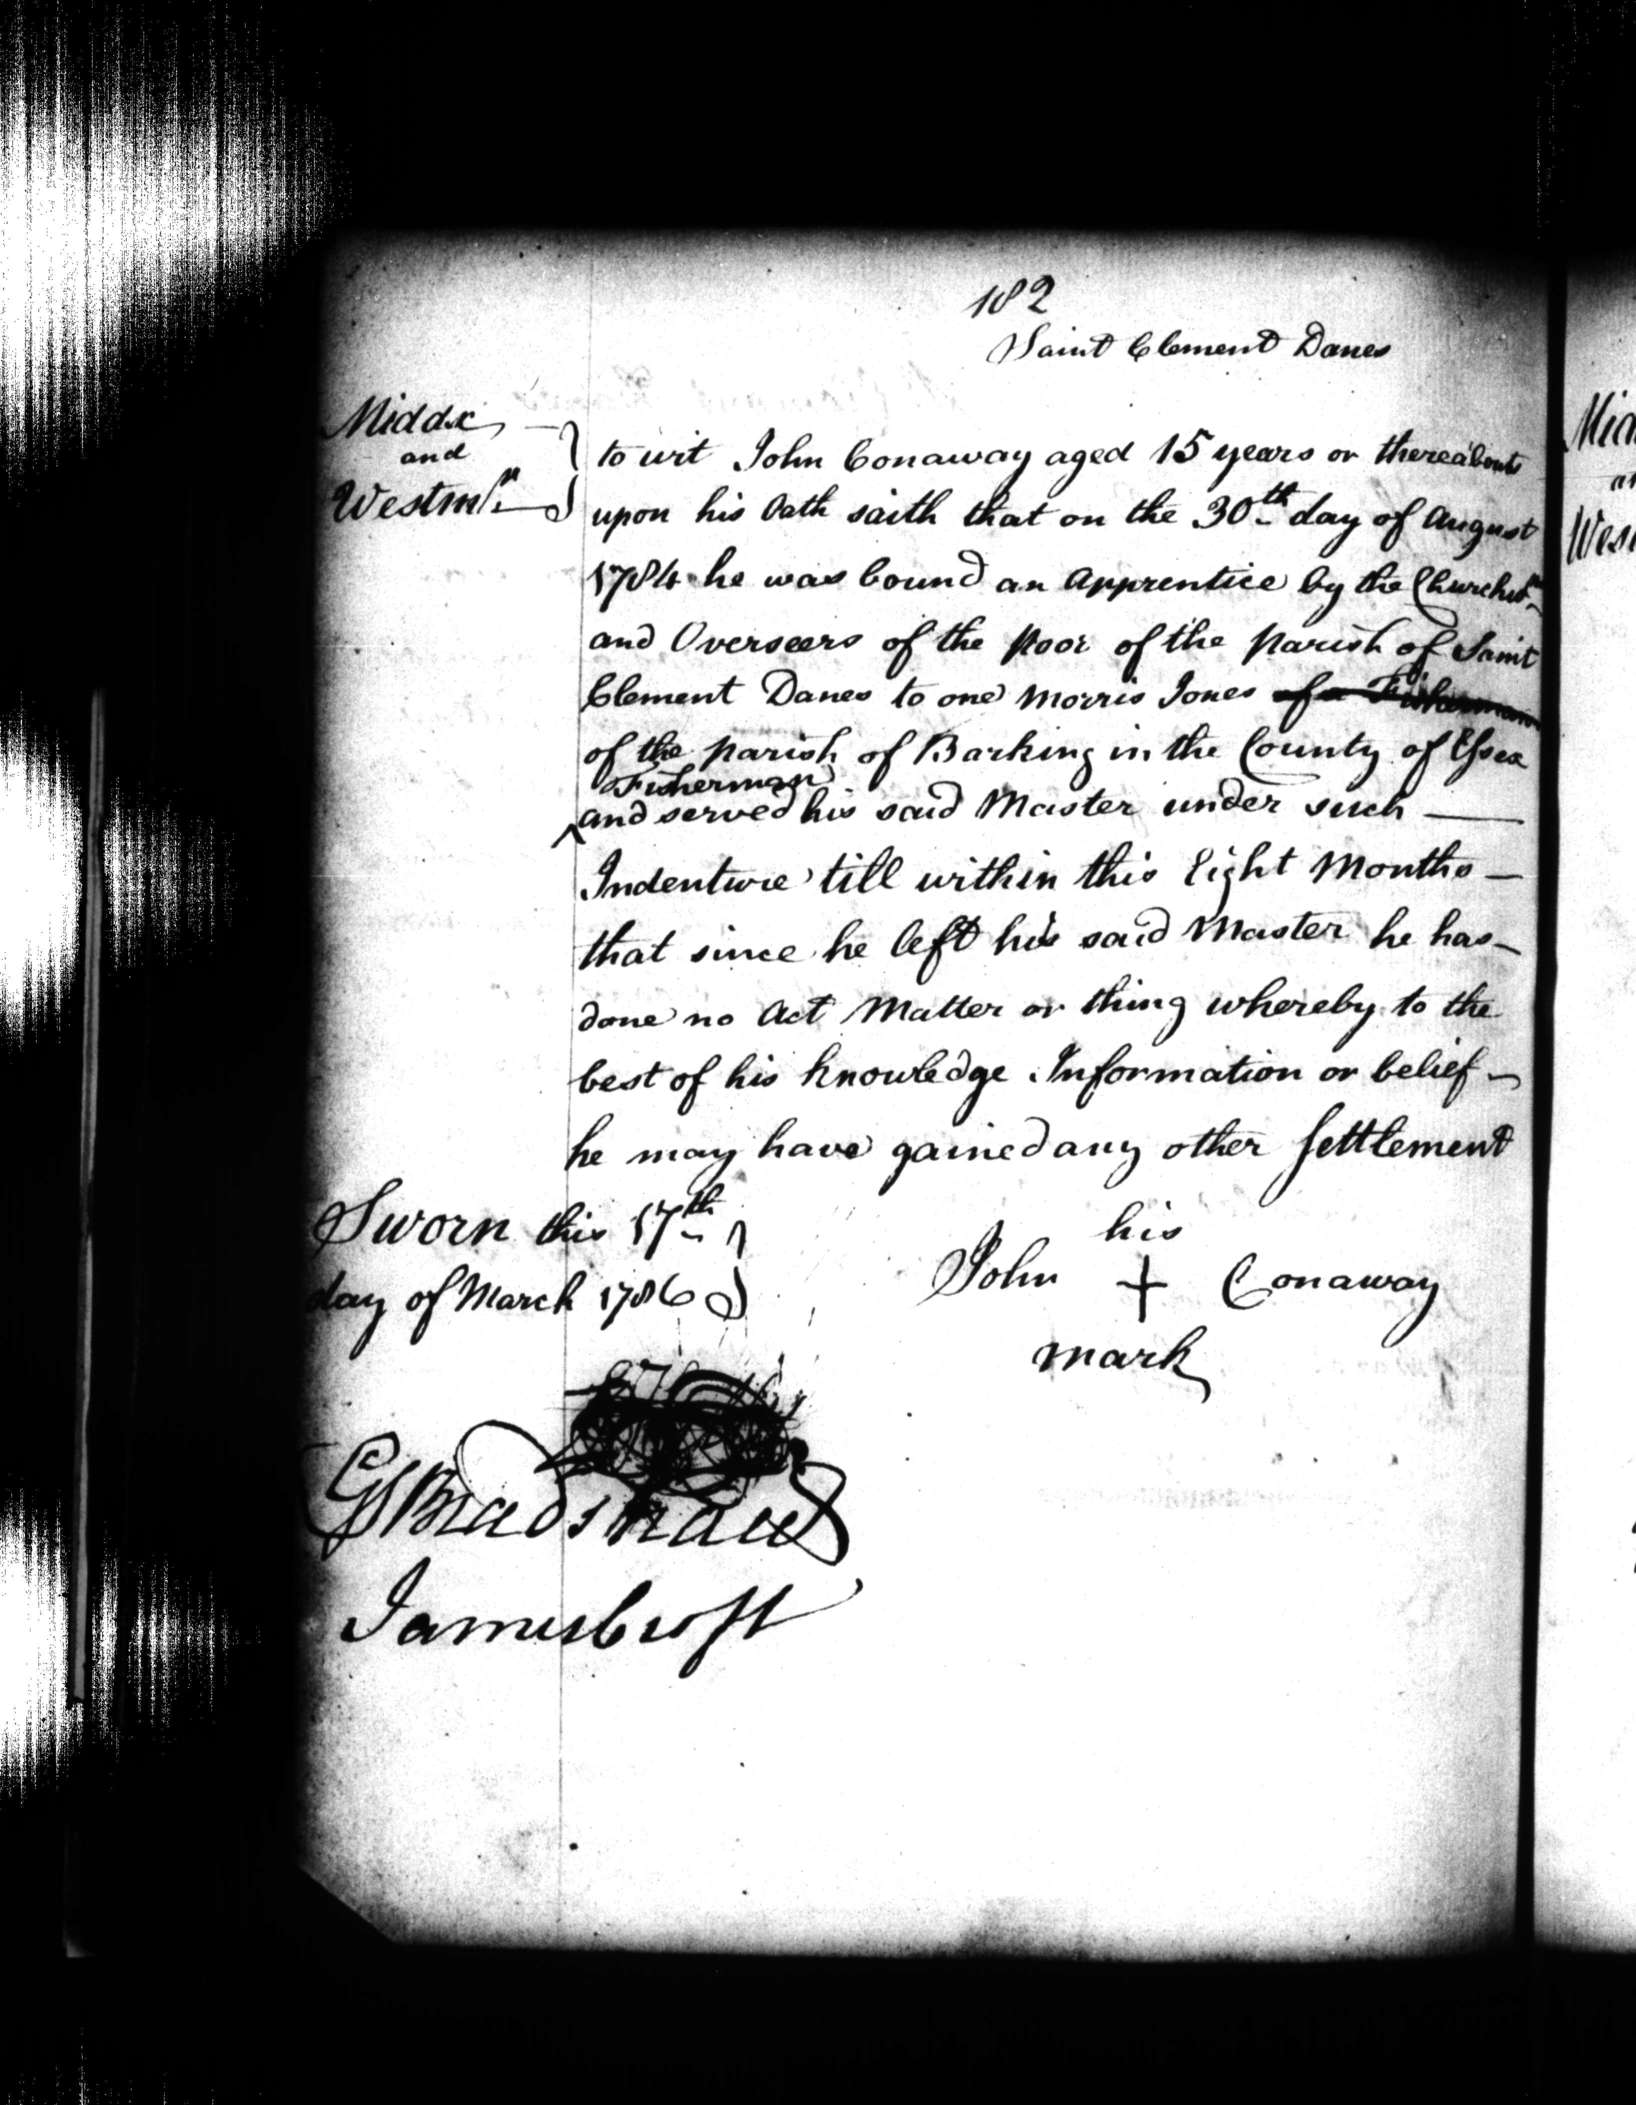 182
Saint Clement Danes
Middx
and
Westmr
to wit John Conaway aged 15 years or thereabouts
upon his Oath saith that on the 30th day of August
1784 he was bound an Apprentice by the Churchwns
and Overseers of the Poor of the Parish of Saint
Clement Danes to one Morris Jones of a Fisherman
of the Parish of Barking in the County of Essex
Fisherman
and served his said Master under such
Indenture till within this Eight Months
that since he left his said Master he has
done no Act Matter or thing whereby to the
best of his knowledge Information or belief
he may have gained any other Settlement
Sworn this 17th
day of March 1786
his
John + Conaway
mark
GS Bradshaw
James Croft
Mid
Wes